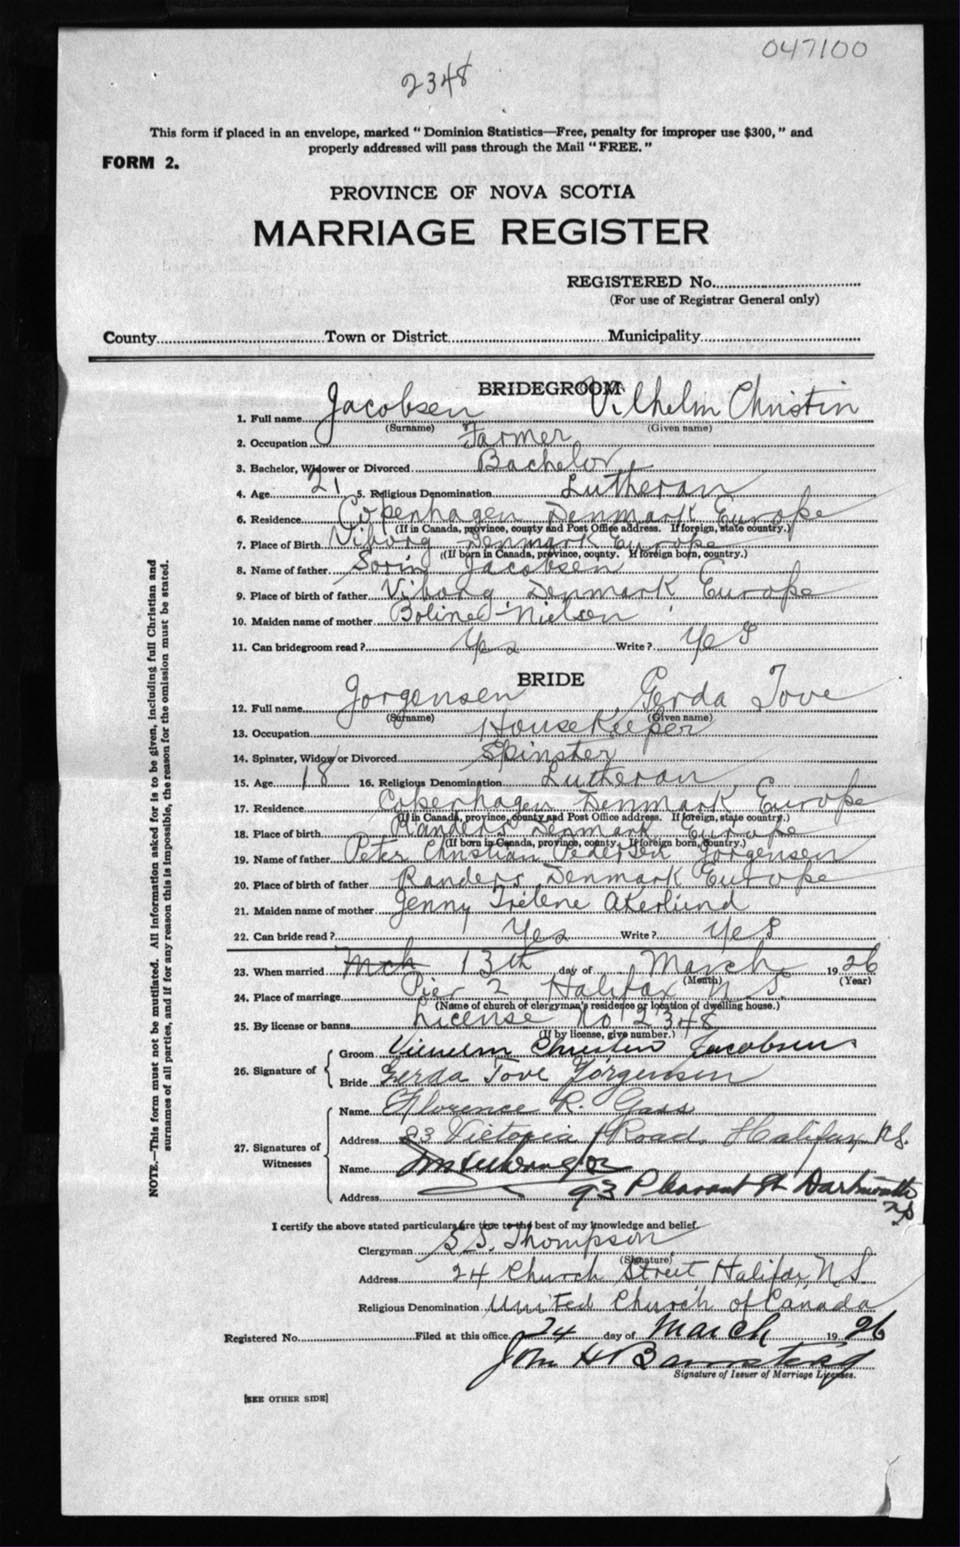 047100
2348
This form if placed in an envelope, marked "Dominion Statistics—Free, penalty for improper use $300," and
properly addressed will pass through the Mail "FREE."
FORM 2.
PROVINCE OF NOVA SCOTIA
MARRIAGE REGISTER
REGISTERED No.
(For use of Registrar General only)
County Town or District Municipality
BRIDEGROOM
1. Full name Jacobsen Vilhelm Christin
(Surname) (Given name)
2. Occupation Farmer
3. Bachelor, Widower or Divorced Bachelor
4. Age 21 5. Religious Denomination Lutheran
6. Residence Copenhagen Denmark Europe
(If in Canada, province, county and Post Office address. If foreign, state country.)
7. Place of Birth Viborg Denmark Europe
(If born in Canada, province, county. If foreign born, country.)
8. Name of father Sorin Jacobsen
9. Place of birth of father Viborg Denmark Europe
10. Maiden name of mother Boline Nielsen
11. Can bridegroom read? Yes Write? Yes
BRIDE
12. Full name Jorgensen Gerda Tove
(Surname) (Given name)
13. Occupation HouseKeeper
14. Spinster, Widow or Divorced Spinster
15. Age 18 16. Religious Denomination Lutheran
17. Residence Copenhagen Denmark Europe
(If in Canada, province, county and Post Office address. If foreign, state country.)
18. Place of birth Randers Denmark Europe
(If born in Canada, province, county. If foreign born, country.)
19. Name of father Peter Christian Pedersen Jorgensen
20. Place of birth of father Randers Denmark Europe
21. Maiden name of mother Jenny Trilene Akerlund
22. Can bride read? Yes Write? Yes
23. When married Mch 13th day of March 1926
(Month) (Year)
24. Place of marriage Pier 2 Halifax N.S.
(Name of church or clergyman's residence or location of dwelling house.)
25. By license or banns License No 2348
(If by license, give number.)
26. Signature of
Groom Vilhelm Christin Jacobsen
Bride Gerda Tove Jörgensen
27. Signatures of Witnesses
Name Florence R. Gass
Address 23 Victoria Road, Halifax N.S.
Name
Address 93 Pleasant St Dartmouth
NS
I certify the above stated particulars are true to the best of my knowledge and belief.
Clergyman S. S. Thompson
(Signature)
Address 24 Church Street Halifax, N.S.
Religious Denomination United Church of Canada
Registered No. Filed at this office 24 day of March 1926
John H Barnstead
Signature of Issuer of Marriage Licenses.
[SEE OTHER SIDE]
NOTE.—This form must not be mutilated. All information asked for is to be given, including full Christian and
surnames of all parties, and if for any reason this is impossible, the reason for the omission must be stated.